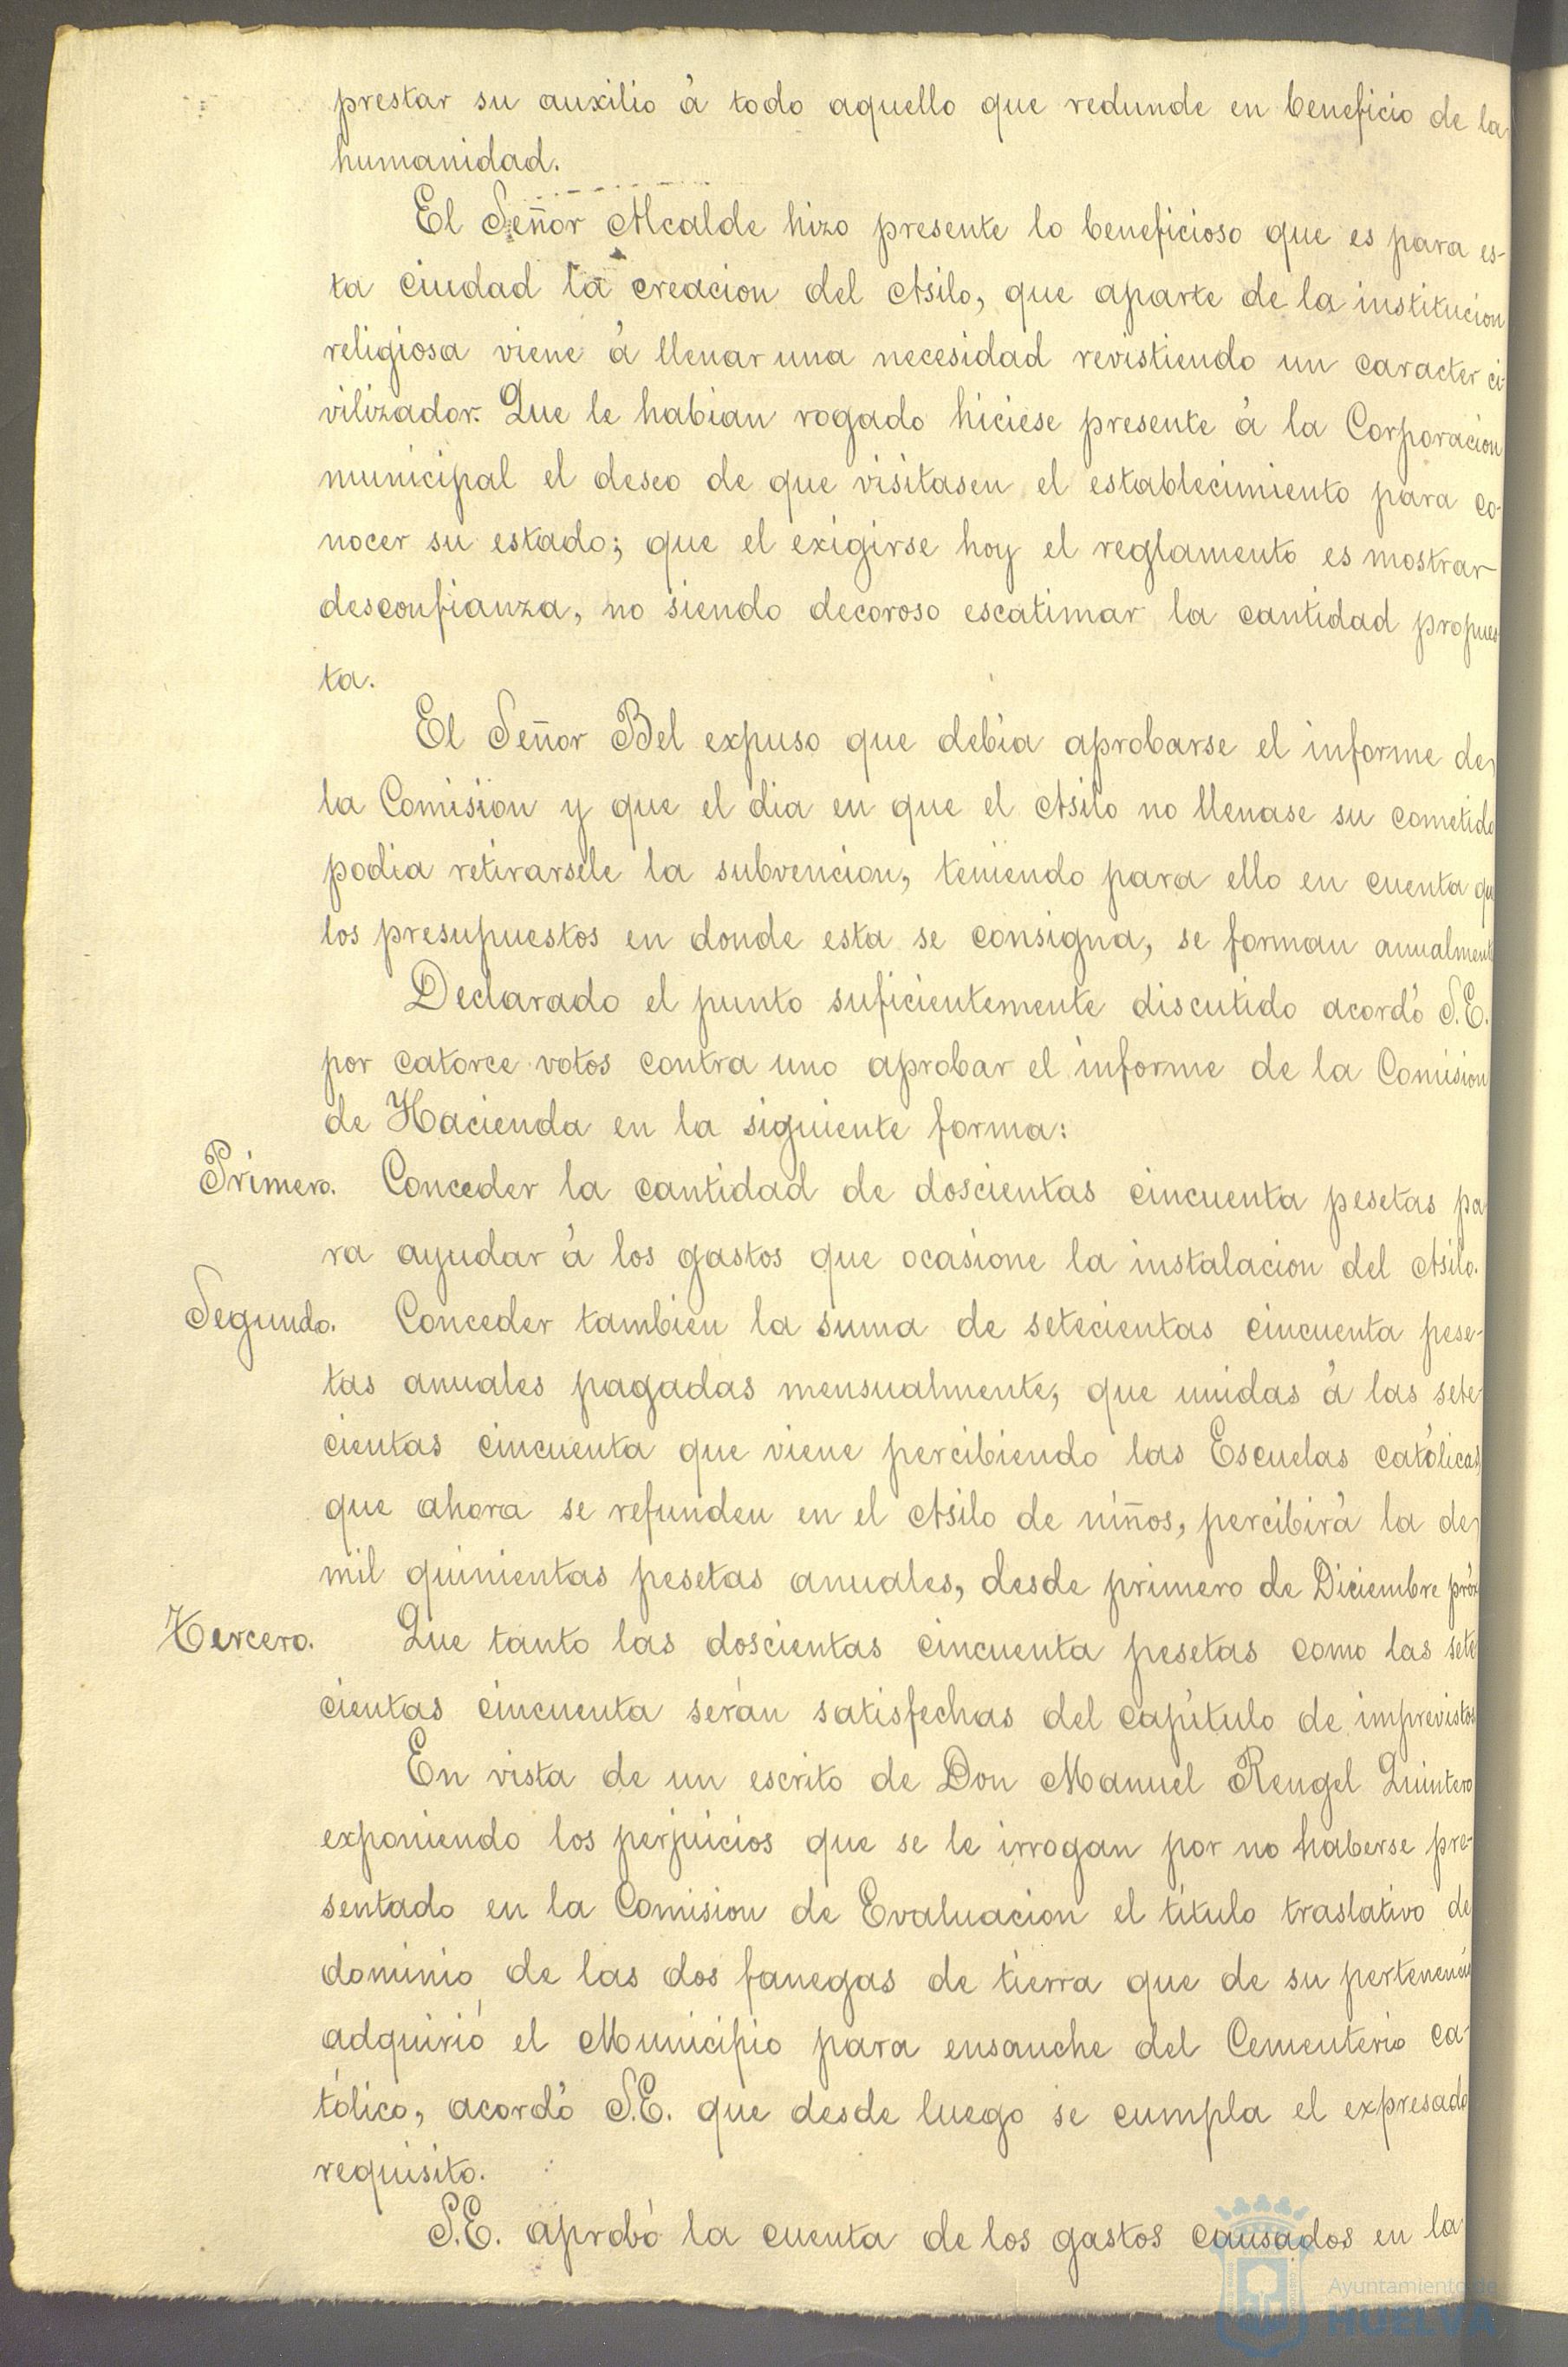 prestar su auxilio á todo aquello que redunde en beneficio de la
humanidad.
El Señor Alcalde hizo presente lo beneficioso que es para es-
ta ciudad la creacion del Asilo, que aparte de la institucion
religiosa viene á llenar una necesidad revistiendo un caracter ci
vilizador. Que le habian rogado hiciese presente á la Corporacion
municipal el deseo de que visitasen el establecimiento para co-
nocer su estado; que el exigirse hoy el reglamento es mostrar
desconfianza, no siendo decoroso escatimar la cantidad propues
ta.
El Señor Bel expuso que debia aprobarse el informe de
la Comision y que el dia en que el Asilo no llenase su cometido
podia retirarsele la subvencion, teniendo para ello en cuenta que
los presupuestos en donde esta se consigna, se forman anualmente
Declarado el punto suficientemente discutido acordó S.E.
por catorce votos contra uno aprobar el informe de la Comision
de Hacienda en la siguiente forma:
Primero. Conceder la cantidad de doscientas cincuenta pesetas pa
ra ayudar á los gastos que ocasione la instalacion del Asilo.
Segundo. Conceder tambien la suma de setecientas cincuenta pese-
tas anuales pagadas mensualmente, que unidas á las sete-
cientas cincuenta que viene percibiendo las Escuelas católicas
que ahora se refunden en el Asilo de niños, percibirá la de
mil quinientas pesetas anuales, desde primero de Diciembre próx
Tercero. Que tanto las doscientas cincuenta pesetas como las sete
cientas cincuenta serán satisfechas del capítulo de imprevistos
En vista de un escrito de Don Manuel Rengel Quintero
exponiendo los perjuicios que se le irrogan por no haberse pre-
sentado en la Comision de Evaluacion el título traslativo de
dominio de las dos fanegas de tierra que de su pertenencia
adquirió el Municipio para ensanche del Cementerio ca-
tólico, acordó S.E. que desde luego se cumpla el expresado
requisito.
S.E. aprobó la cuenta de los gastos causados en la
Ayuntamiento de
HUELVA